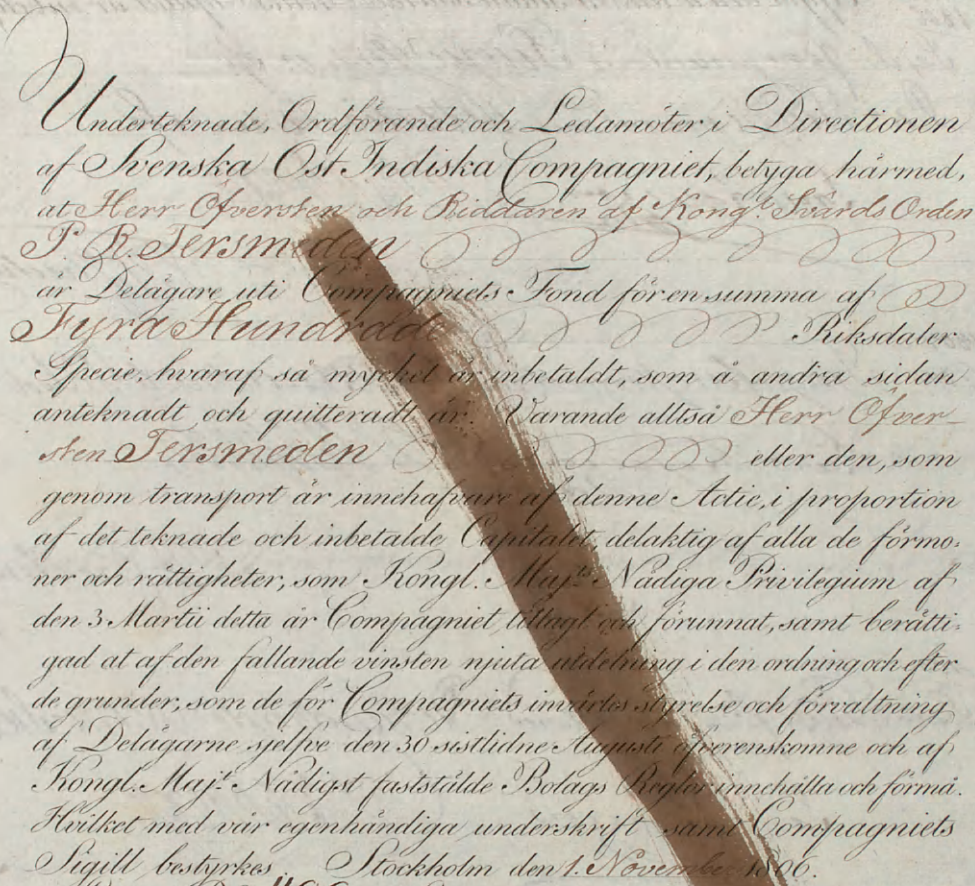 Underteknade, Ordförande och Ledamöter i Directionen
af Svenska Ost Indiska Compagniet, betyga härmed,
at Herr Öfversten och Riddaren af Kongl. Svärds Orden
P. R. Tersmeden
är Delägare uti Compagniets Fond för en summa af
Fyra Hundrade Riksdaler
Specie, hvaraf så mycket är inbetaldt, som å andra sidan
anteknadt och quitteradt är. Varande alltså Herr Öfver-
sten Tersmeden eller den, som
genom transport är innehafvare af denne Actie, i proportion
af det teknade och inbetalde Capitalet, delaktig af alla de förmo-
ner och rättigheter, som Kongl. Majts Nådiga Privilegium af
den 3 Martii detta år Compagniet tillagt och förunnat, samt berätti-
gad at af den fallande vinsten njuta utdelning i den ordning och efter
de grunder, som de för Compagniets inwärtes styrelse och förvaltning
af Delägarne sjelfve den 30 sistlidne Augusti öfverenskomne och af
Kongl. Majt Nådigst faststälde Bolags Reglor innehålla och förmå.
Hvilket med vår egenhändiga underskrift samt Compagniets
Sigill bestyrkes. Stockholm den 1. November 1806.